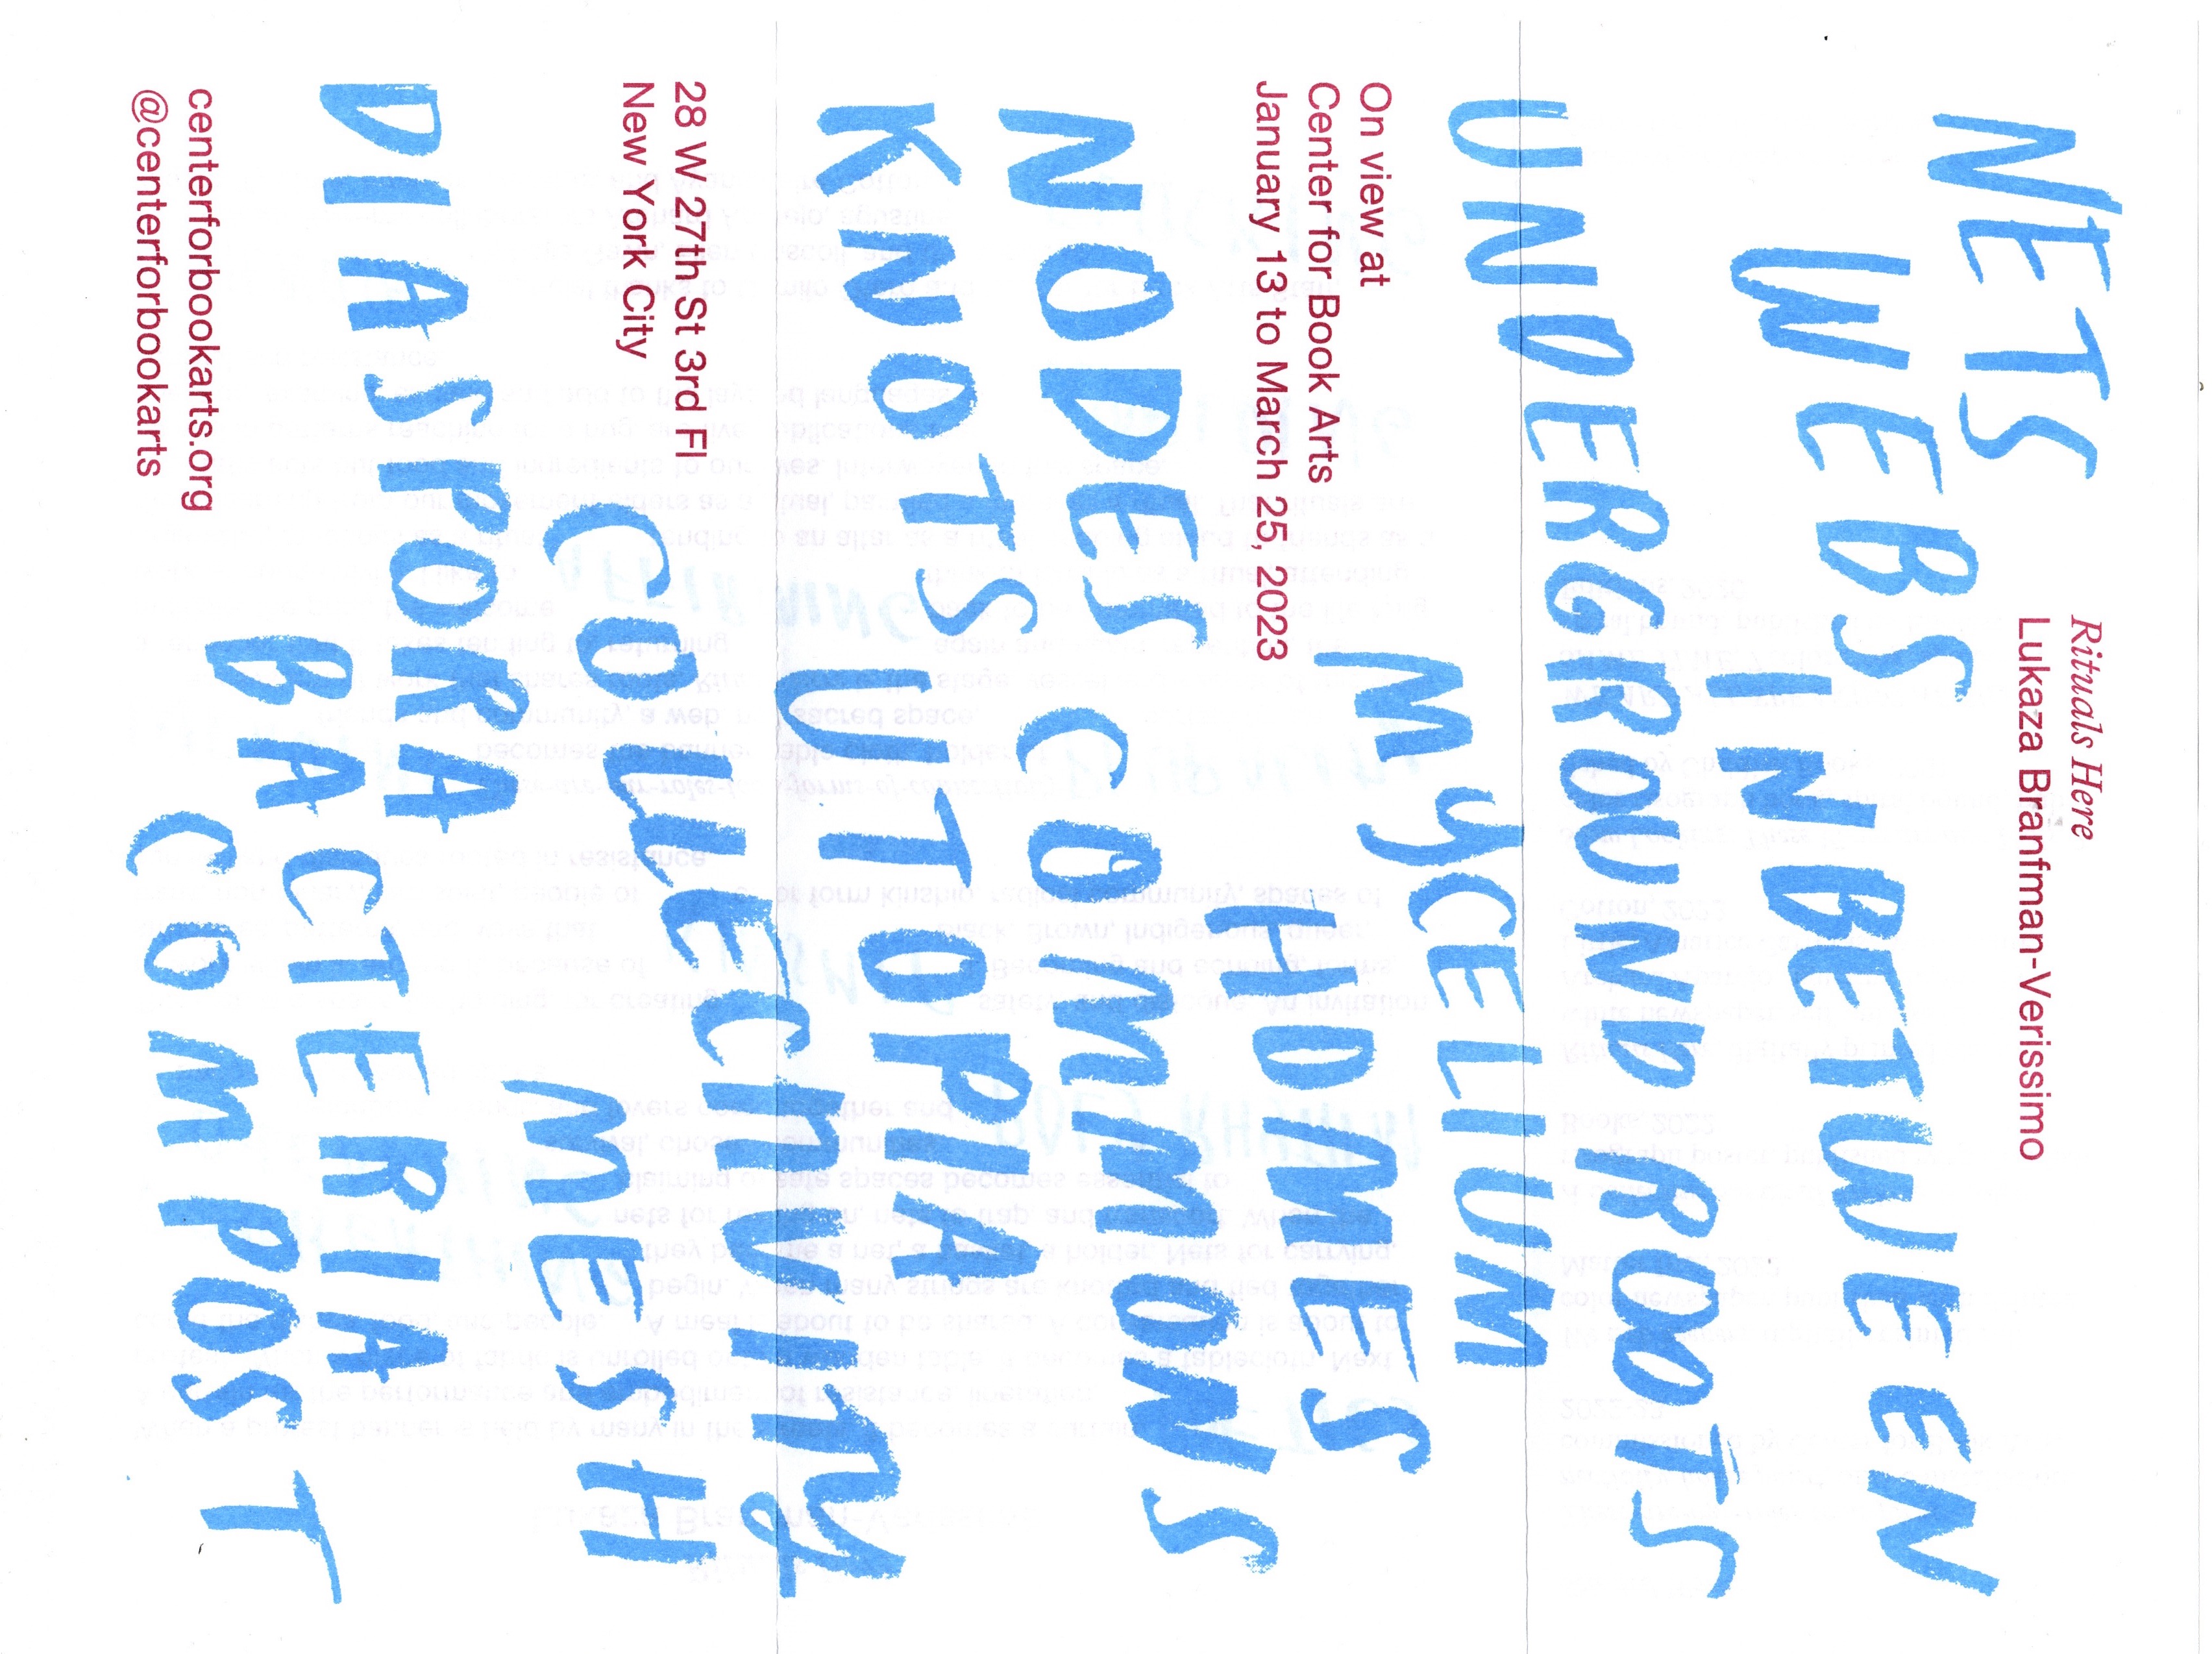 NETS
Rituals Here
Lukaza Branfman-Verissimo
WEBS
IN BETWEEN
UNDERGROUND ROOTS
MYCELIUM
On view at
Center for Book Arts
January 13 to March 25, 2023
HOMES
NODES
COMMONS
KNOTS
UTOPIA
28 W 27th St 3rd Fl
New York City
COLLECTIVITY
MESH
DIASPORA
BACTERIA
COMPOST
centerforbookarts.org
@centerforbookarts